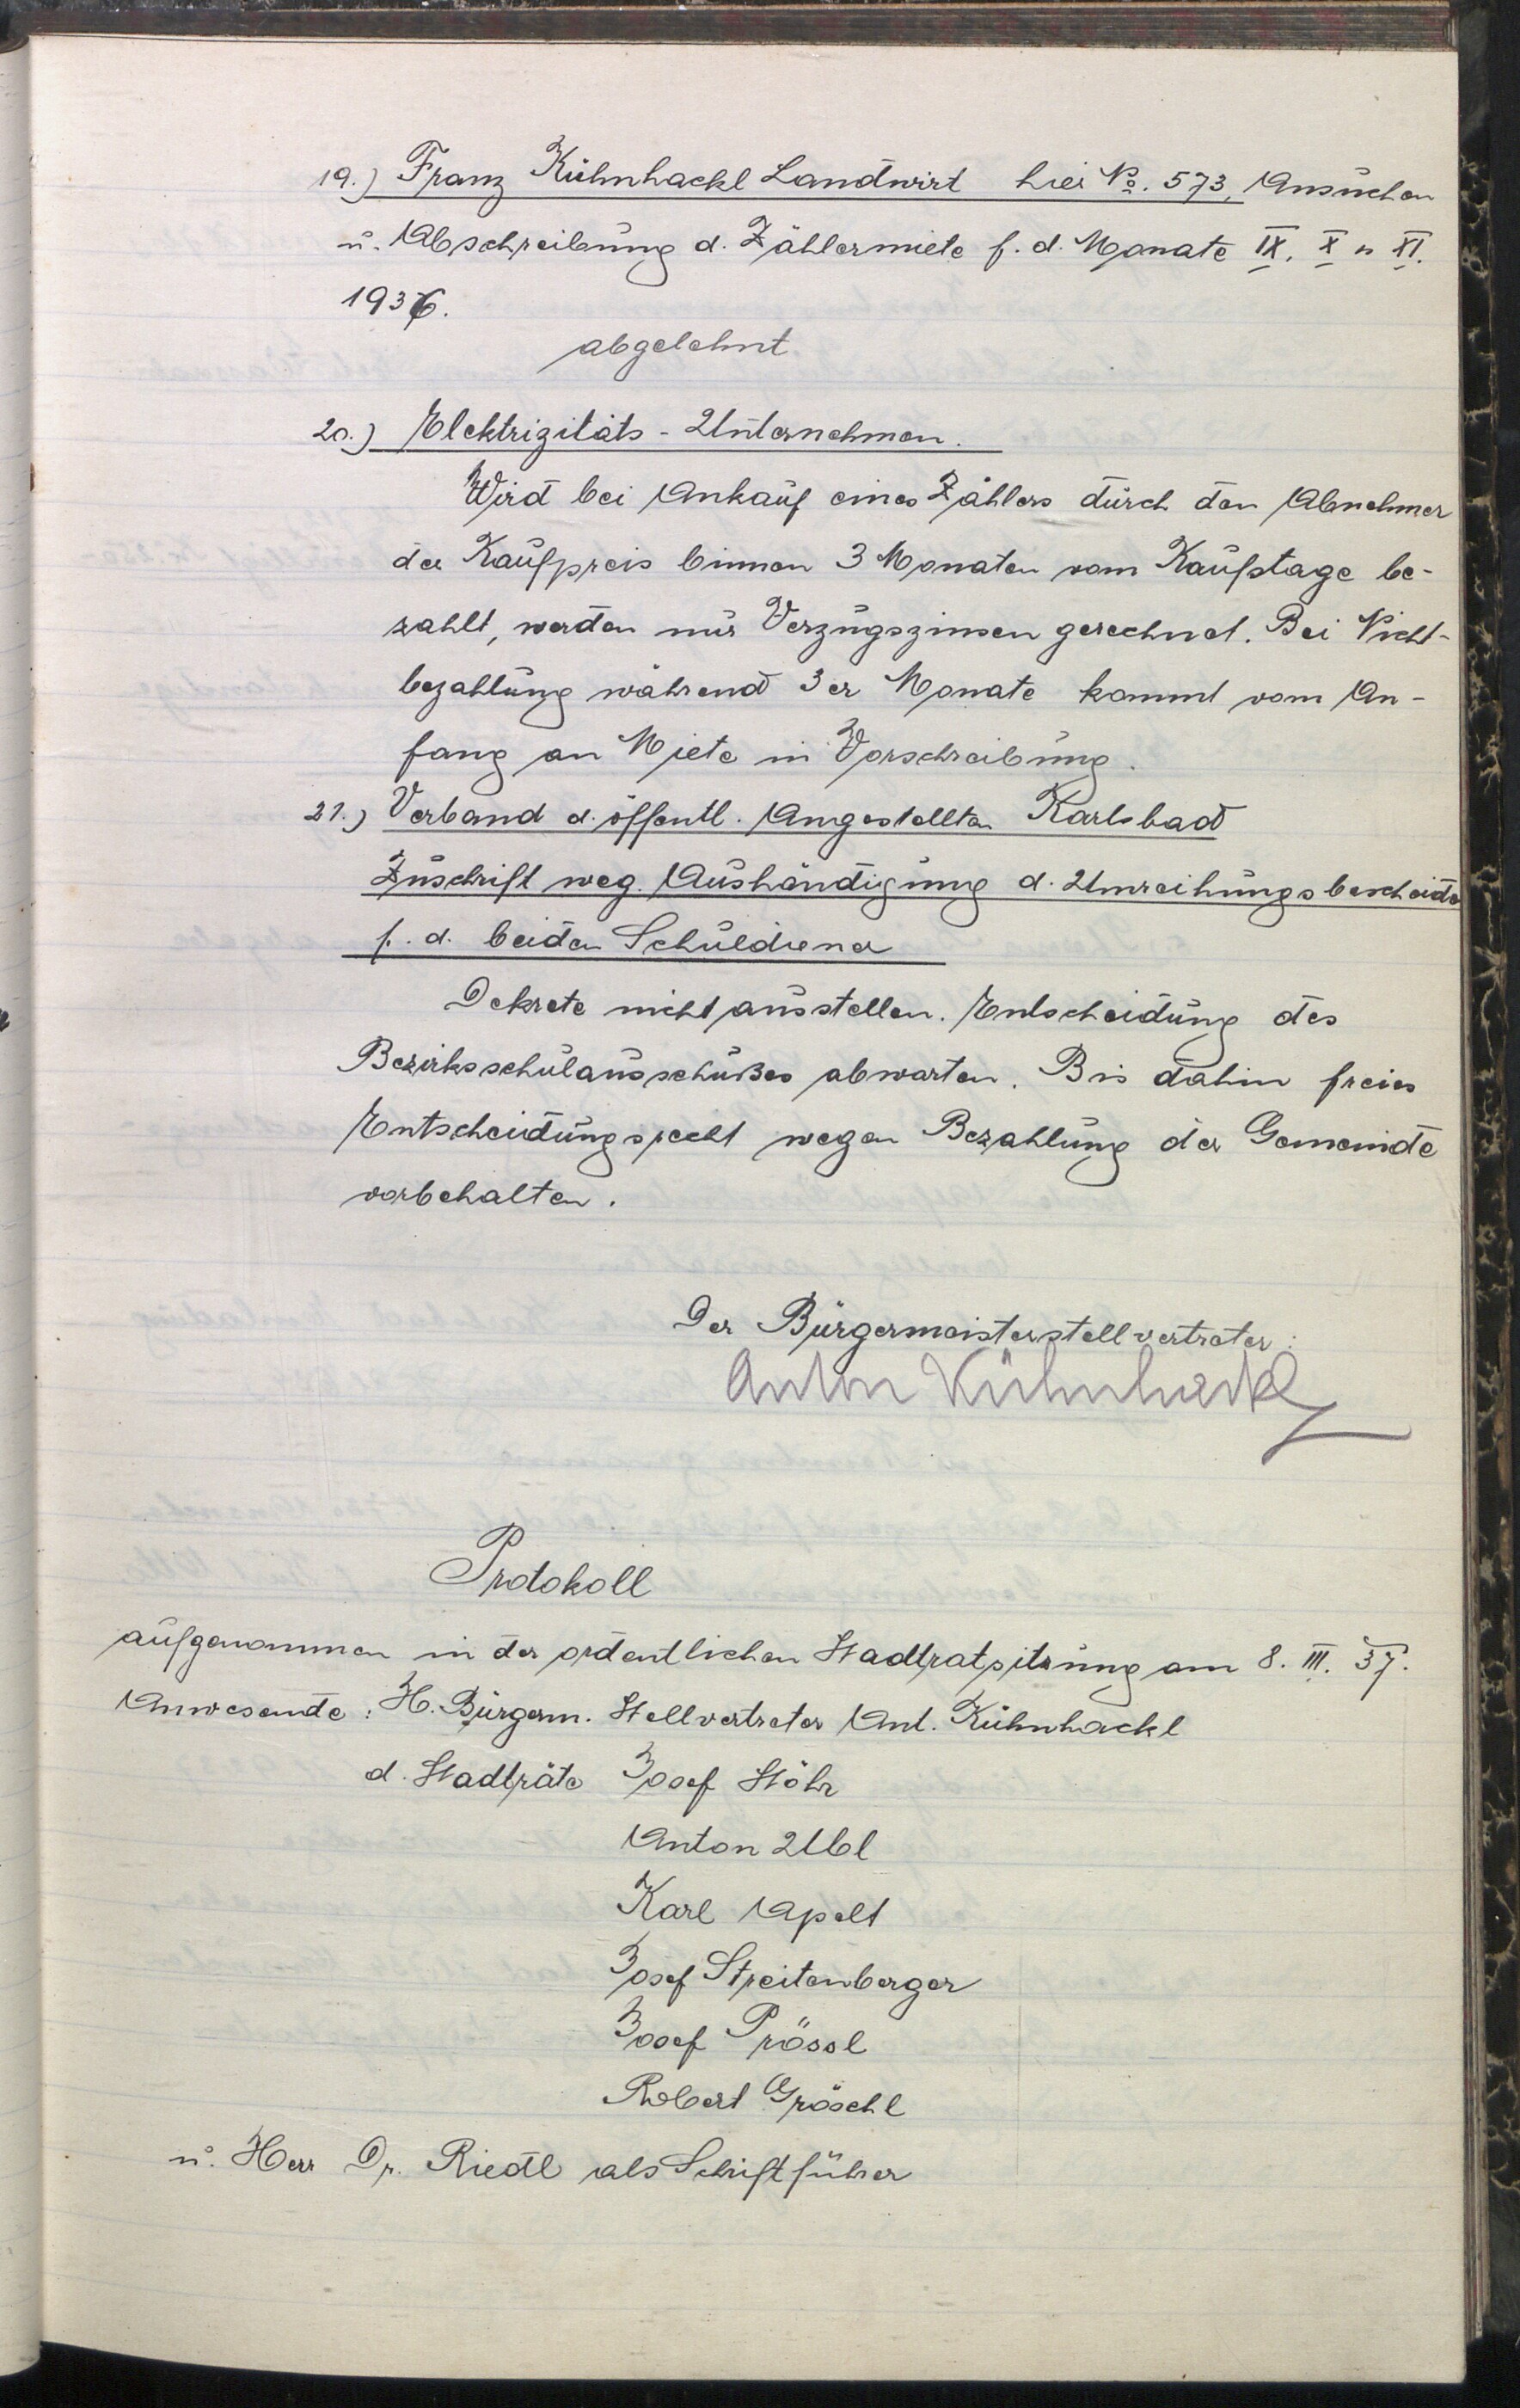 19.) Franz Kühnhackl Landwirt hier No. 573, Ansuchen
u. Abschreibung d. Zählermiete f. d. Monate IX, X u XI.
1936.
abgelehnt
20.) Elektrizitäts - Unternehmen.
Wird bei Ankauf eines Zählers durch den Abnehmer
der Kaufpreis binnen 3 Monaten vom Kaufstage be-
zahlt, werden nur Verzugszinsen gerechnet. Bei Nicht-
bezahlung während 3er Monate kommt vom An-
fang an Miete in Vorschreibung.
21.) Verband d. öffentl. Angestellten Karlsbad
Zuschrift weg. Aushändigung d. Umreihungsbescheide
f. d. beiden Schuldiener
Dekrete nicht ausstellen. Entscheidung des
Bezirksschulausschußes abwarten. Bis dahin freies
Entscheidungsrecht wegen Bezahlung der Gemeinde
vorbehalten.
Der Bürgermeisterstellvertreter:
Anton Kühnhackl
Protokoll
aufgenommen in der ordentlichen Stadtratsitzung am 8. III. 37.
Anwesende: H. Bürgerm. Stellvertreter Ant. Kühnhackl
d. Stadträte Josef Stöhr
Anton Ubl
Karl Apelt
Josef Streitenberger
Josef Prössl
Robert Gröschl
u. Herr Dr. Riedl als Schriftführer